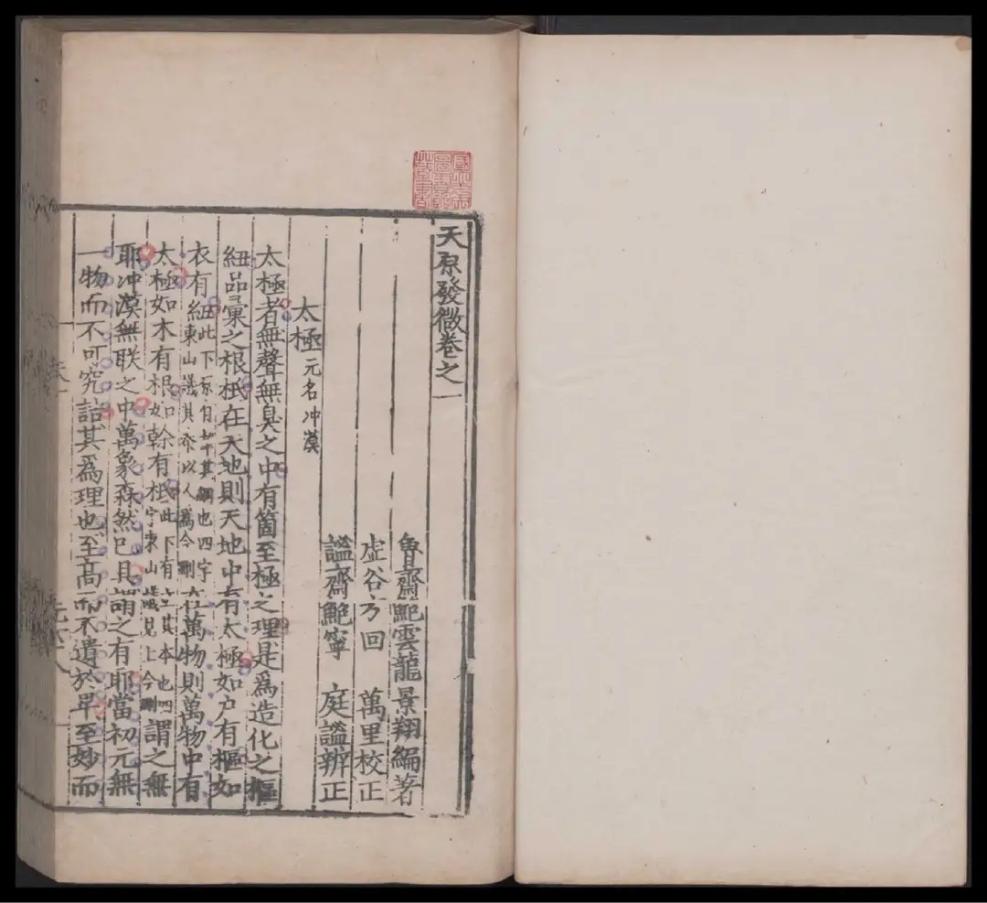 天原發微卷之一
魯齋鮑雲龍景翔編著
虛谷方回 萬里校正
謚齋鮑寧 庭謚辨正
太極元名冲漠
太極者無聲無臭之中有箇至極之理是爲造化之樞
紐品彙之根柢在天地則天地中有太極如户有樞如
衣有紐此下原有如其綱也四字紿東山議其亦以人爲今刪在萬物則萬物中有
太極如木有根如榦有柢此下有其本也四字東山議見上今刪謂之無
耶冲漠無眹之中萬象森然已具謂之有耶當初元無
一物而不可究詰其爲理也至高而不遺於卑至妙而